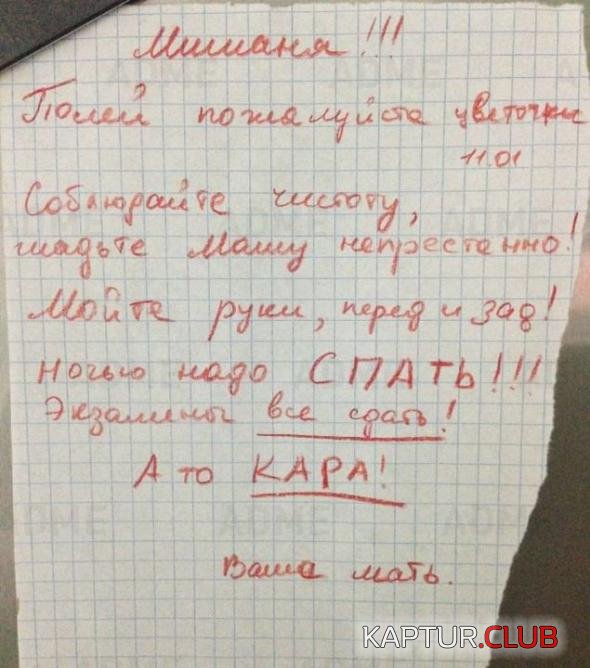 Мишаня!!!
Полей пожалуйста цветочки
11.01
Соблюдайте чистоту,
гладьте Машу непрестанно!
Мойте руки, перед и зад!
Ночью надо СПАТЬ!!!
Экзамены все сдать!
А то КАРА!
Ваша мать.
KAPTUR.CLUB